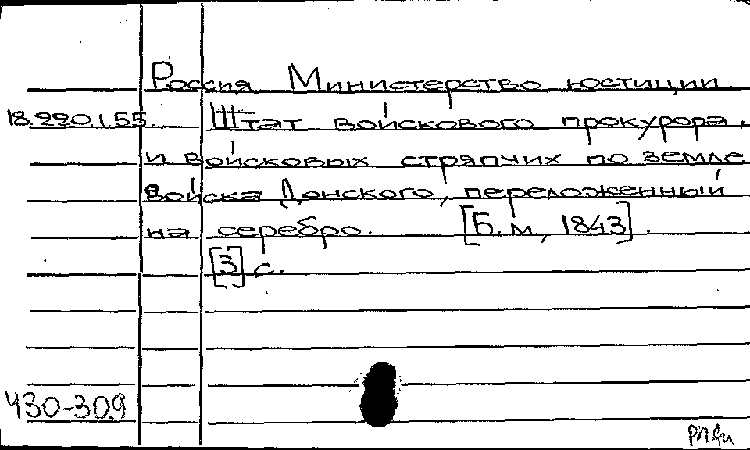 Россия Министерство юстиции
18.220.1.55. Штат войскового прокурора
и войсковых стряпчих по земле
войска Донского, переложенный
на серебро. [Б.м., 1843].
[3] с.
430-309